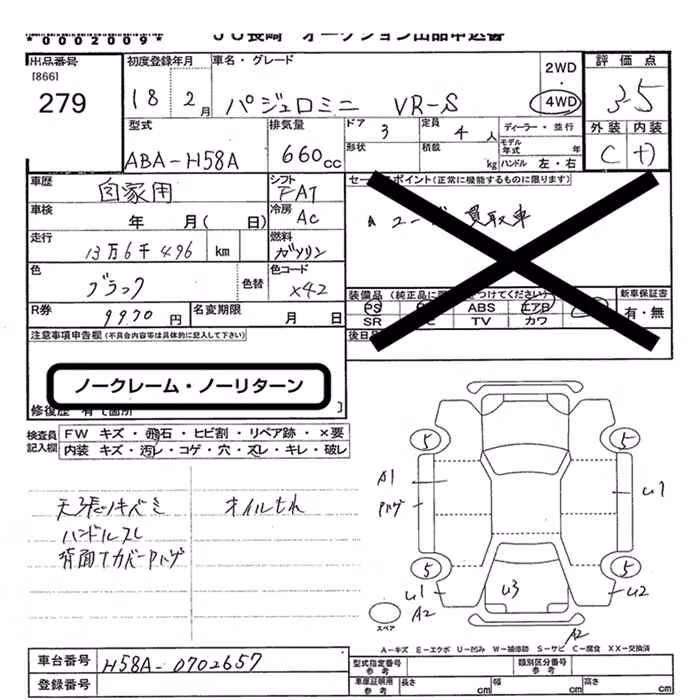 *0002009* JU長崎 オークション出品申込書
出品番号 初度登録年月 車名・グレード 2WD・4WD 評価点
[866]
279 18 2月 パジェロミニ VR-S 3-5
型式 排気量 ドア 3 定員 4人 ディーラー・並行 外装 内装
ABA-H58A 660cc 形状 積載 kg モデル年式 年 ハンドル 左・右 C
車歴 自家用 シフト FAT セールスポイント(正常に機能するものに限ります)
車検 年 月( 日) 冷房 AC 買取車
走行 13万6千496 km 燃料 ガソリン
色 ブラック 色替 色コード X42 装備品
PS ABS エアB 新車保証書
R券 9970円 名変期限 月 日 SR TV カワ 有・無
注意事項申告欄(不具合内容等は具体的に記入して下さい)
ノークレーム・ノーリターン
検査員記入欄 FW キズ・飛石・ヒビ割・リペア跡・×要
内装 キズ・汚レ・コゲ・穴・ズレ・キレ・破レ
天張ノキバミ オイルもれ
ハンドルスレ
背面TカバーPハゲ
5 5
A1
Pハゲ U1
5 5
U1 U3 U2
A2
スペア
A2
A-キズ E-エクボ U-凹み W-補修跡 S-サビ C-腐食 XX-交換済
車台番号 H58A-0702657 型式指定番号参考 類別区分番号参考
登録番号 車庫証明用参考 長さ cm 幅 cm 高さ cm